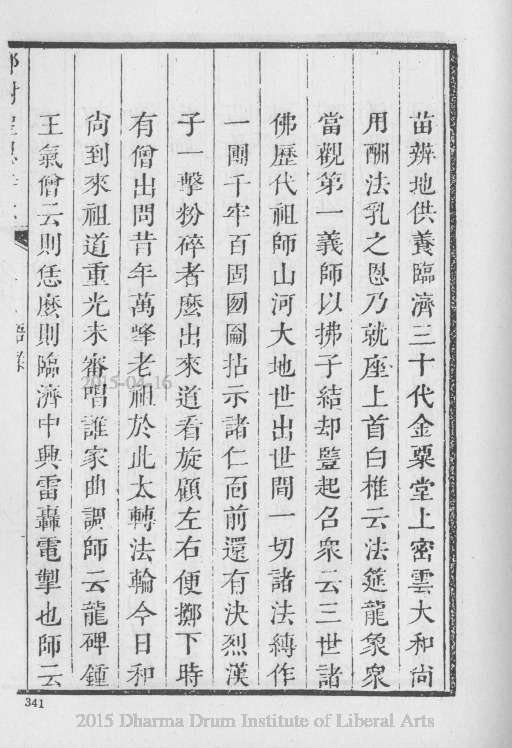 苗辨地供養臨濟三十代金粟堂上密雲大和尚
用酬法乳之恩乃就座上首白椎云法筵龍象衆
當觀第一義師以拂子結却豎起召衆云三世諸
佛歷代祖師山河大地世出世間一切諸法縛作
一團千牢百固囫圇拈示諸仁面前還有決烈漢
子一擊粉碎者麼出來道看旋顧左右便擲下時
有僧出問昔年萬峰老祖於此太轉法輪今日和
尚到來祖道重光未審唱誰家曲調師云龍碑鍾
王氣僧云則恁麼則臨濟中興雷轟電掣也師云
語錄
341
2015-04-16
2015 Dharma Drum Institute of Liberal Arts